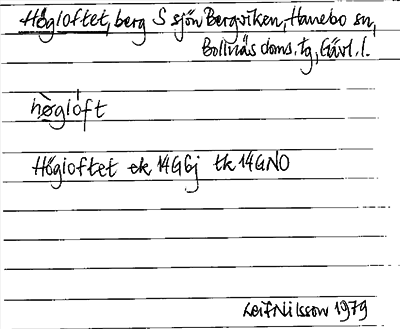 Högloftet, berg S sjön Bergviken, Hanebo sn,
Bollnäs doms. tg, Gävl. l.
hò̀glóft
Högloftet ek 14G6j tk 14GNO
Leif Nilsson 1979